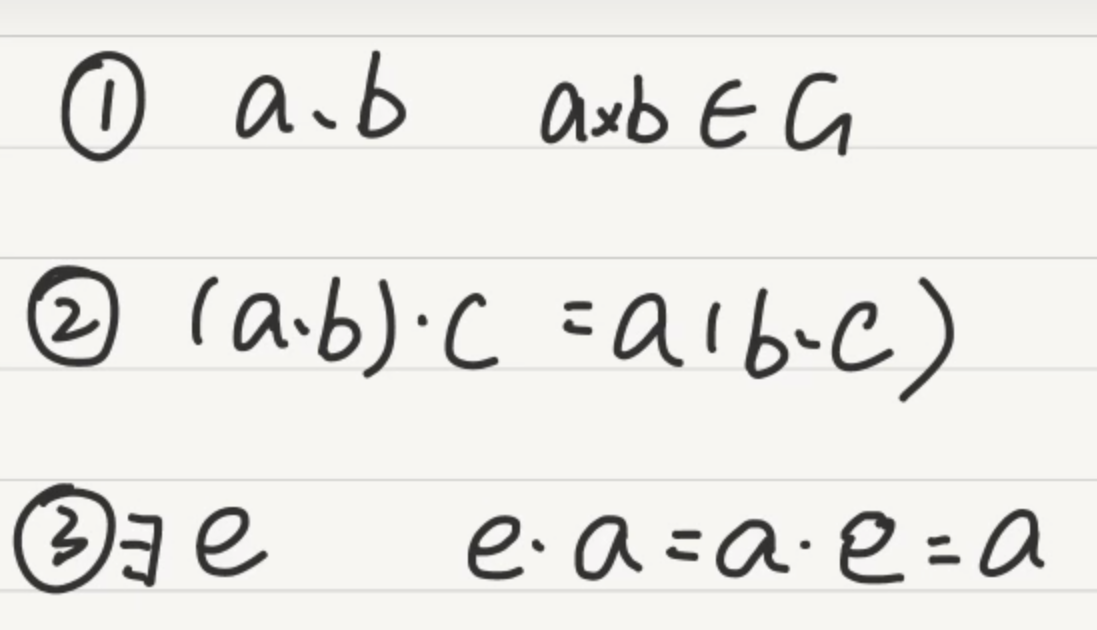 ① a、b a×b ∈ G
② (a·b)·c = a(b·c)
③ ∃ e e·a = a·e = a